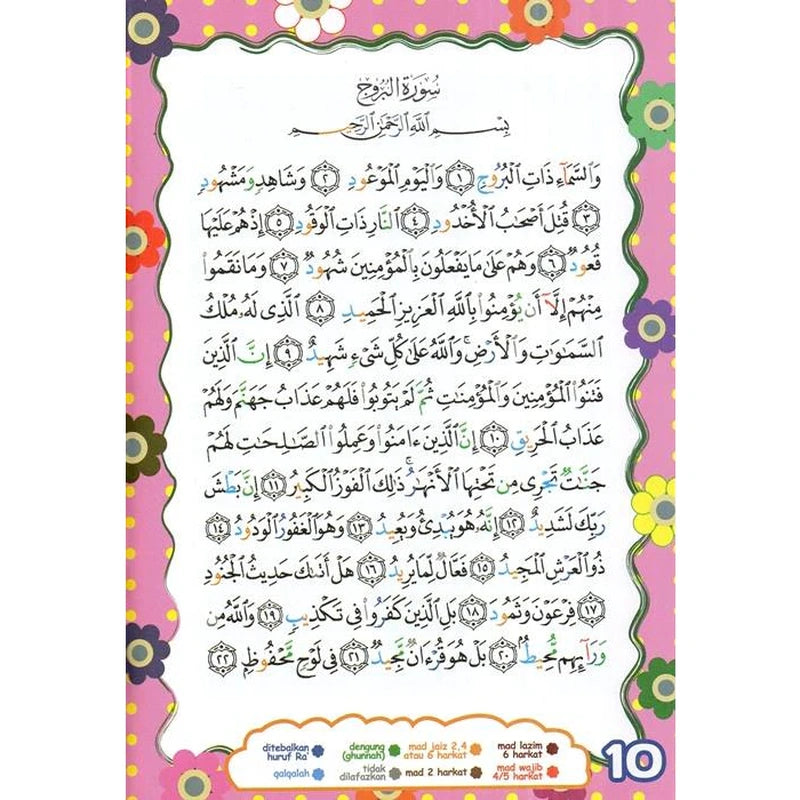 سُورَةُ الْبُرُوجِ
بِسْمِ اللَّهِ الرَّحْمَٰنِ الرَّحِيمِ
وَالسَّمَآءِ ذَاتِ الْبُرُوجِ ١ وَالْيَوْمِ الْمَوْعُودِ ٢ وَشَاهِدٍ وَمَشْهُودٍ
٣ قُتِلَ أَصْحَابُ الْأُخْدُودِ ٤ النَّارِ ذَاتِ الْوَقُودِ ٥ إِذْ هُمْ عَلَيْهَا
قُعُودٌ ٦ وَهُمْ عَلَىٰ مَا يَفْعَلُونَ بِالْمُؤْمِنِينَ شُهُودٌ ٧ وَمَا نَقَمُوا
مِنْهُمْ إِلَّآ أَن يُؤْمِنُوا بِاللَّهِ الْعَزِيزِ الْحَمِيدِ ٨ الَّذِى لَهُۥ مُلْكُ
السَّمَٰوَٰتِ وَالْأَرْضِ ۚ وَاللَّهُ عَلَىٰ كُلِّ شَىْءٍ شَهِيدٌ ٩ إِنَّ الَّذِينَ
فَتَنُوا الْمُؤْمِنِينَ وَالْمُؤْمِنَٰتِ ثُمَّ لَمْ يَتُوبُوا فَلَهُمْ عَذَابُ جَهَنَّمَ وَلَهُمْ
عَذَابُ الْحَرِيقِ ١٠ إِنَّ الَّذِينَ ءَامَنُوا وَعَمِلُوا الصَّٰلِحَٰتِ لَهُمْ
جَنَّٰتٌ تَجْرِى مِن تَحْتِهَا الْأَنْهَٰرُ ۚ ذَٰلِكَ الْفَوْزُ الْكَبِيرُ ١١ إِنَّ بَطْشَ
رَبِّكَ لَشَدِيدٌ ١٢ إِنَّهُۥ هُوَ يُبْدِئُ وَيُعِيدُ ١٣ وَهُوَ الْغَفُورُ الْوَدُودُ ١٤
ذُو الْعَرْشِ الْمَجِيدُ ١٥ فَعَّالٌ لِّمَا يُرِيدُ ١٦ هَلْ أَتَىٰكَ حَدِيثُ الْجُنُودِ
١٧ فِرْعَوْنَ وَثَمُودَ ١٨ بَلِ الَّذِينَ كَفَرُوا فِى تَكْذِيبٍ ١٩ وَاللَّهُ مِن
وَرَآئِهِم مُّحِيطٌ ٢٠ بَلْ هُوَ قُرْءَانٌ مَّجِيدٌ ٢١ فِى لَوْحٍ مَّحْفُوظٍ ٢٢
ditebalkan huruf Ra' dengung (ghunnah) mad jaiz 2,4 atau 6 harkat mad lazim 6 harkat
qalqalah tidak dilafazkan mad 2 harkat mad wajib 4/5 harkat
10